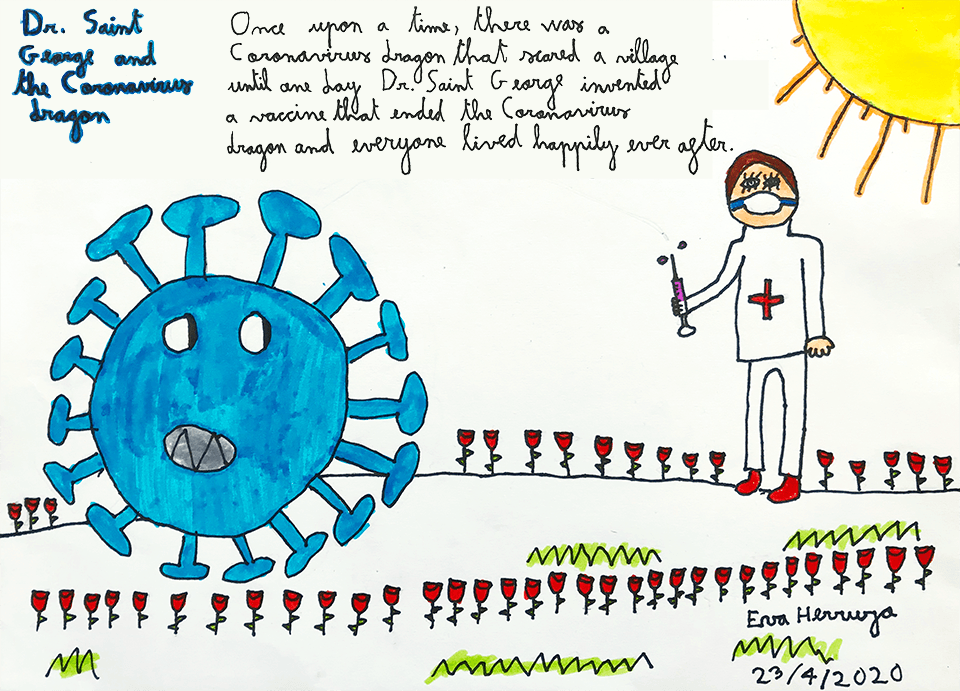 Dr. Saint
George and
the Coronavirus
dragon
Once upon a time, there was a
Coronavirus dragon that scared a village
until one day Dr. Saint George invented
a vaccine that ended the Coronavirus
dragon and everyone lived happily ever after.
Eva Herruzo
23/4/2020